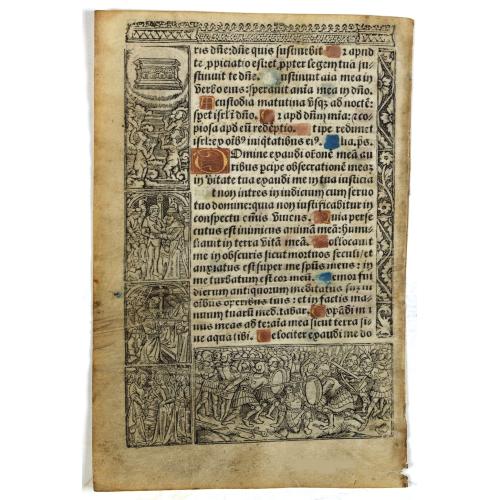 ris dñe: dñe quis sustinebit Q r apud
te ppiciatio est: et ppter legem tuã su
stinuit te dñe. S ustinuit aĩa mea in
verbo eius: speravit anĩa mea in dño.
A custodia matutina vsqz ad nocte:
spet isrl' ĩ dño. Q r apd dñm mĩa: et co
piosa apd eũ redẽptio. E t ipe redimet
isrl' ex oĩb' iniqtatibus ei'. Alia, ps.
D omine exaudi orõne meã au
ribus pcipe obsecrationẽ meaz
in vitate tua exaudi me in tua iusticia
E t non intres in iudicium cum servo
tuo domine: quia non iustificabitur in
conspectu vivens. Q uia perse
cutus est inimicus animam meã: humi
liavit in terra vitã meã. C ollocavit
me in obscuris sicut mortuos seculi et
anxiatus est super me spũs meus: in
me turbatum est cor meũ. M emor fui
dierum antiquorum meditatus sum in
oibus operibus tuis: et in factis ma
nuum tuarũ med. tabar. E xpãdi ma
nus meas ad te aĩa mea sicut terra si
ne aqua tibi. V elociter exaudi me do